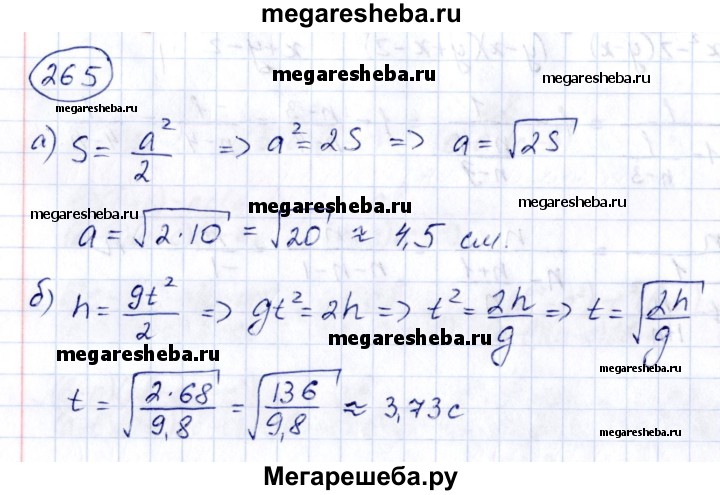 megaresheba.ru
265
megaresheba.ru
megaresheba.ru
megaresheba.ru
а) S = a²/2 => a² = 2S => a = √2S
megaresheba.ru
megaresheba.ru
megaresheba.ru
a = √2·10 = √20 ≈ 4,5 см.
б) h = gt²/2 => gt² = 2h => t² = 2h/g => t = √2h/g
megaresheba.ru
megaresheba.ru
t = √2·68/9,8 = √136/9,8 ≈ 3,73 с
megaresheba.ru
Мегарешеба.ру